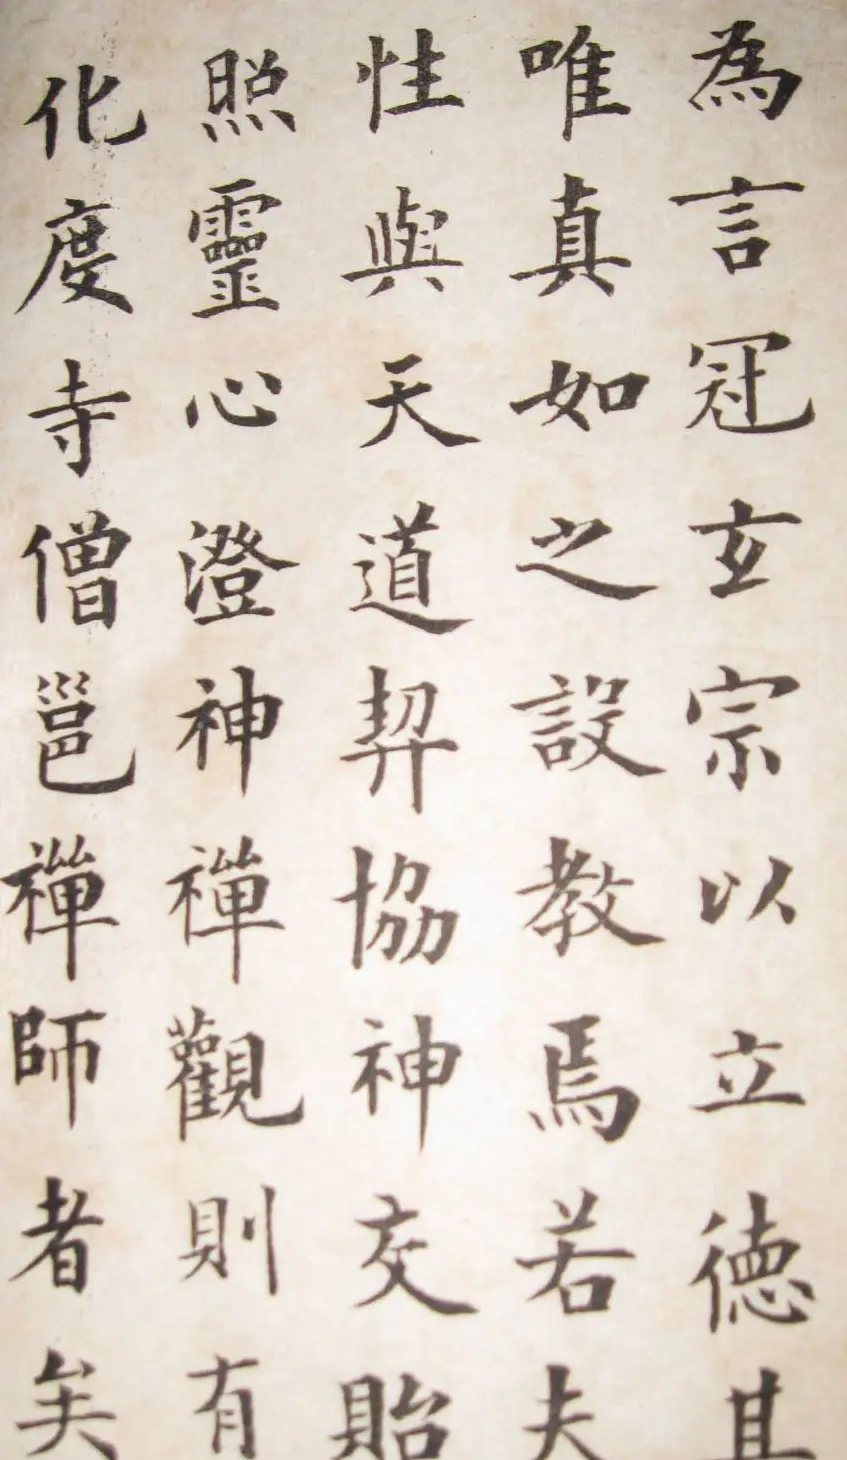 為言冠玄宗以立德其
唯真如之設教焉若夫
性與天道契協神交貽
照靈心澄神禪觀則有
化度寺僧邕禪師者矣